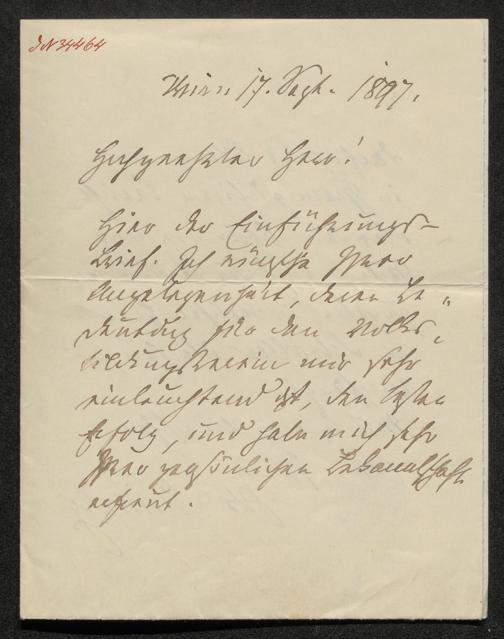 JN 34464
Wien 17. Sept. 1897.
Hochgeehrter Herr!
Hier der Einführungs-
brief. Ich wünsche Ihrer
Angelegenheit, deren Be-
deutung für den Volks-
bildungsverein mir sehr
einleuchtend ist, den besten
Erfolg, und habe mich sehr
Ihrer persönlichen Bekanntschaft
erfreut.